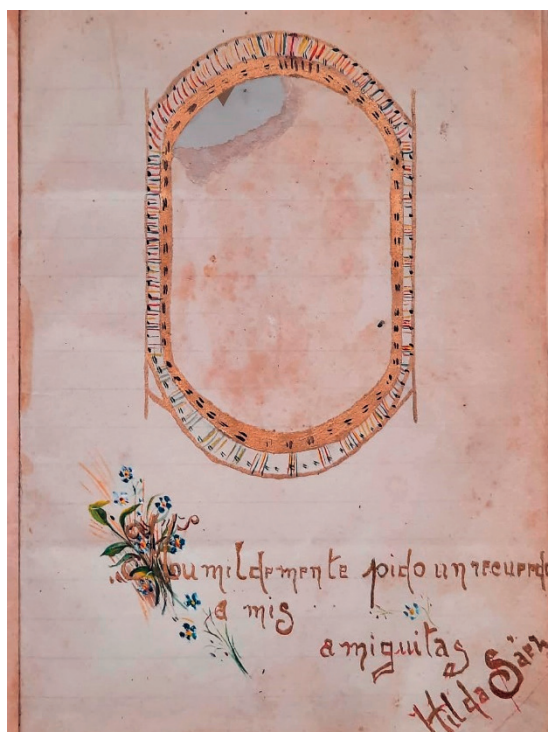 Humildemente pido un recuerdo
a mis
amiguitas
Hilda Sáenz